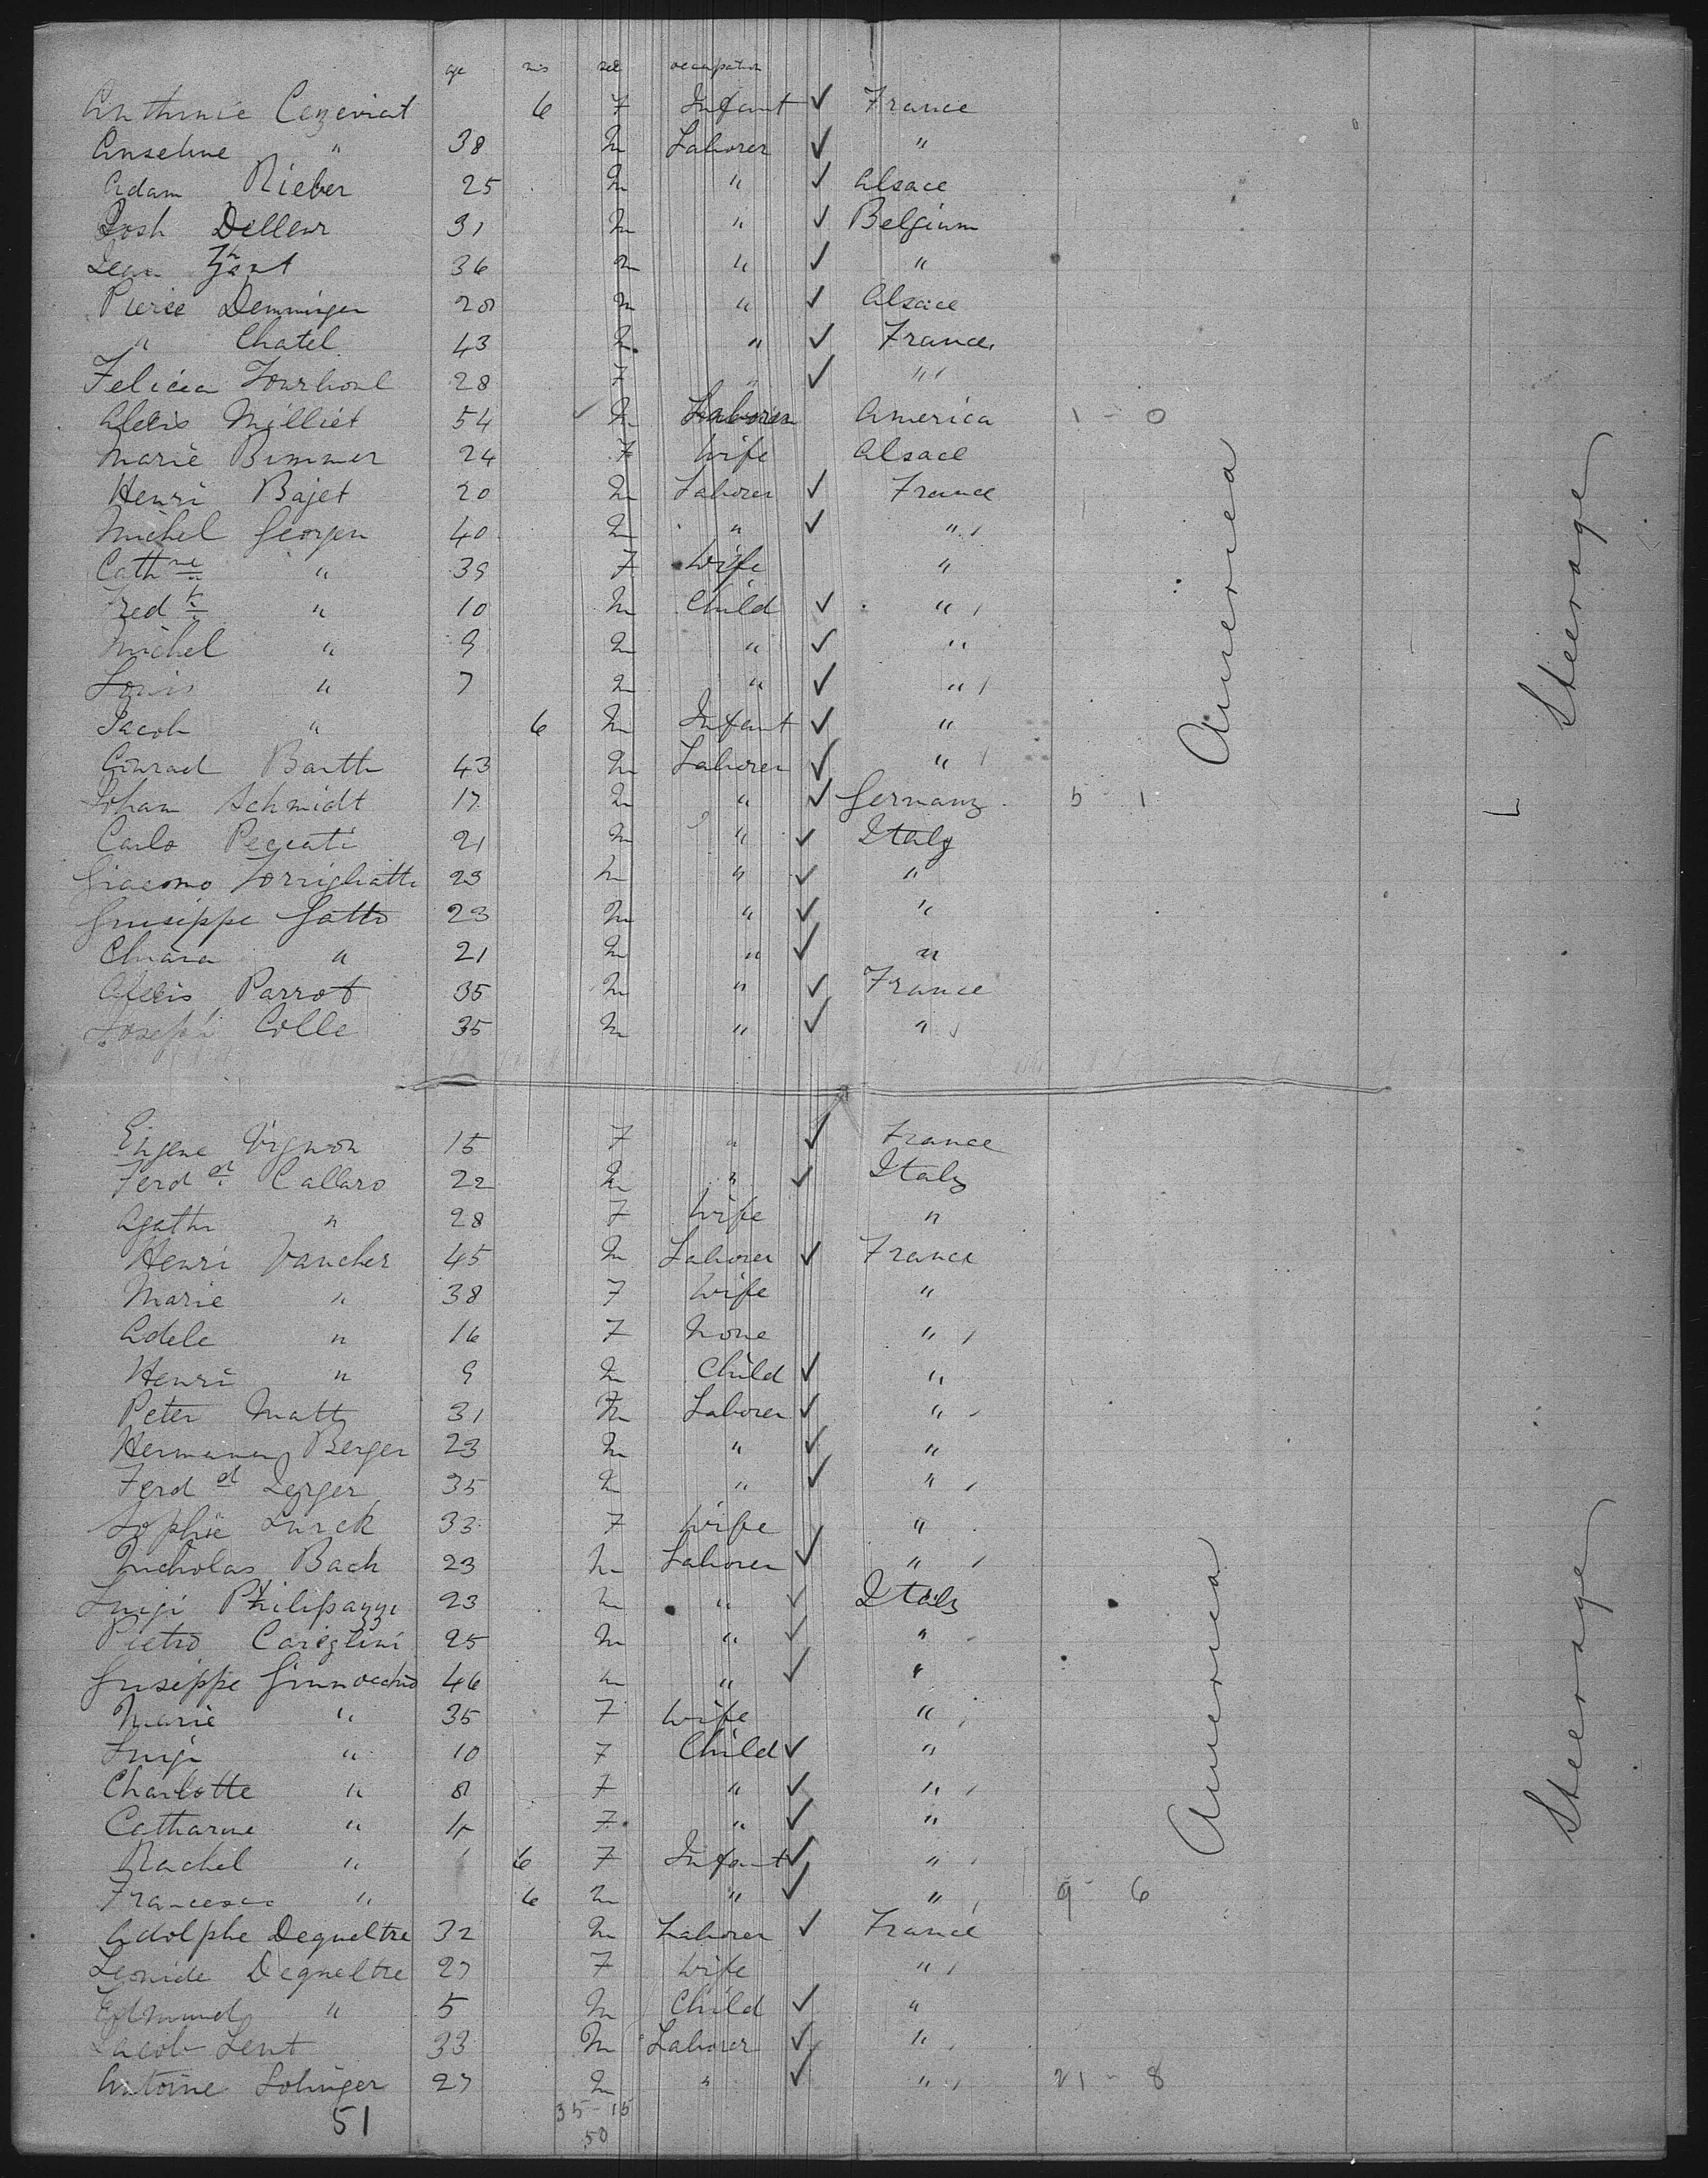 age ms sex occupation
Anthonie Cezeviat 6 F Infant ✓ France
Anselme " 38 M Laborer ✓ "
Adam Rieber 25 M " ✓ Alsace
Josh Delleur 31 M " ✓ Belgium
Jean 36 M " ✓ "
Pierce Demminger 28 M " ✓ Alsace
" Chatel 43 M " ✓ France
Felicia 28 F " ✓ "
Alexis Milliet 54 M Laborer America 1 - 0
Marie Bimmer 24 F Wife Alsace
Henri Bajet 20 M Laborer ✓ France
Michel Georgen 40 M " ✓ "
Cathne " 39 F Wife "
Fredk " 10 M Child ✓ "
Michel " 9 M " ✓ "
Louis " 7 M " ✓ "
Jacob " 6 M Infant ✓ "
Conrad Barth 43 M Laborer ✓ "
Johan Schmidt 17 M " ✓ Germany 5 - 1
Carlo Peccati 21 M " ✓ Italy
Giacomo Torrigliatti 23 M " ✓ "
Guiseppe Gatto 23 M " ✓ "
Chiara " 21 M " ✓ "
Alexis Parrot 35 M " ✓ France
Joseph Colle 35 M " ✓ "
America
Steerage
Eugene Vignon 15 F " ✓ France
Ferdd Callaro 22 M " ✓ Italy
Agath " 28 F Wife "
Henri Vaucher 45 M Laborer ✓ France
Marie " 38 F Wife "
Adele " 16 F None "
Henri " 9 M Child ✓ "
Peter Matty 31 M Laborer ✓ "
Hermann Berger 23 M " ✓ "
Ferdd Zerger 35 M " ✓ "
Sophie Turck 33 F Wife "
Nicholas Bach 23 M Laborer ✓ "
Luigi Philipazzi 23 M " ✓ Italy
Pietro Cariglini 25 M " ✓ "
Guseppe Ginnocchio 46 M " ✓ "
Marie " 35 F Wife "
Luigi " 10 F Child ✓ "
Charlotte " 8 F " ✓ "
Catharine " 4 F " ✓ "
Rachel " 6 F Infant ✓ "
Francesca " 6 M " ✓ " 9 - 6
Adolphe Dequeltre 32 M Laborer ✓ France
Leonide Dequeltre 27 F Wife "
Edmund " 5 M Child ✓ "
Jacob Lent 33 M Laborer ✓ "
Antoine Solinger 27 M " ✓ " 21 - 8
America
Steerage
51 35-15
50